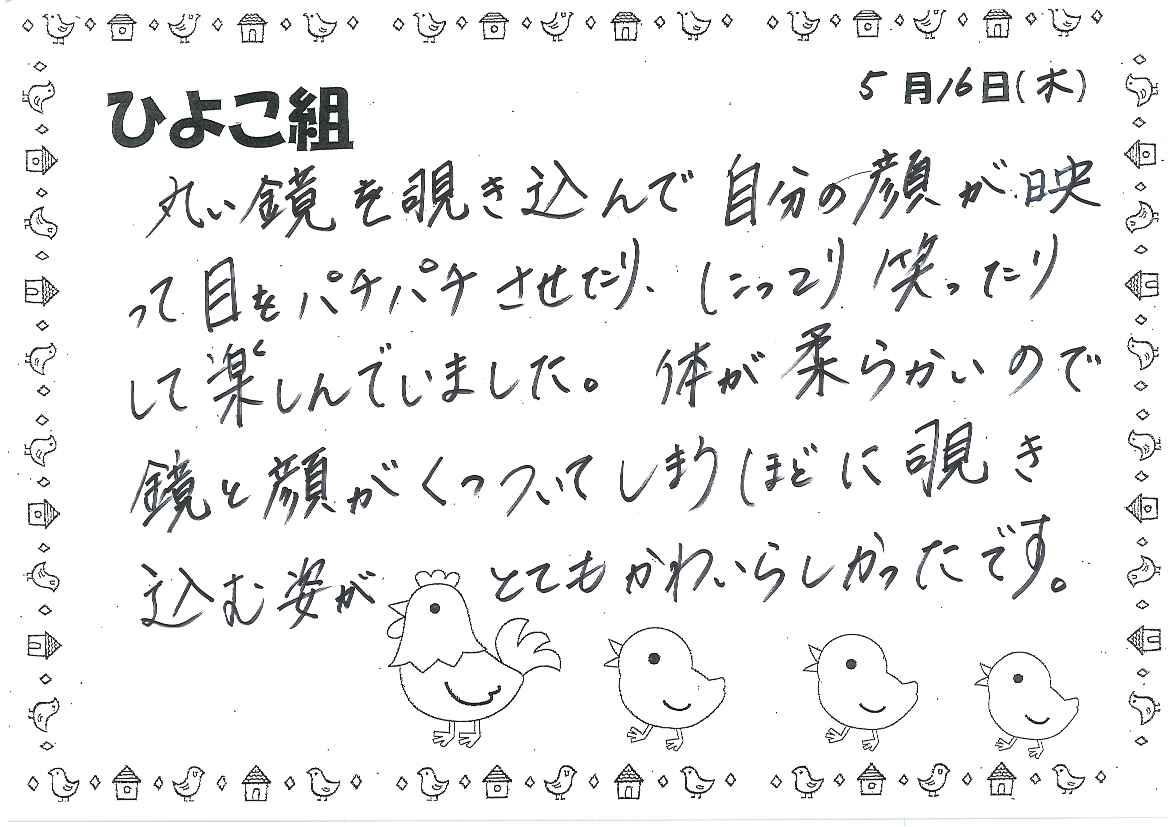 ひよこ組
5月16日(木)
丸い鏡を覗き込んで自分の顔が映
って目をパチパチさせたり、にっこり笑ったり
して楽しんでいました。体が柔らかいので
鏡と顔がくっついてしまうほどに覗き
込む姿がとてもかわいらしかったです。